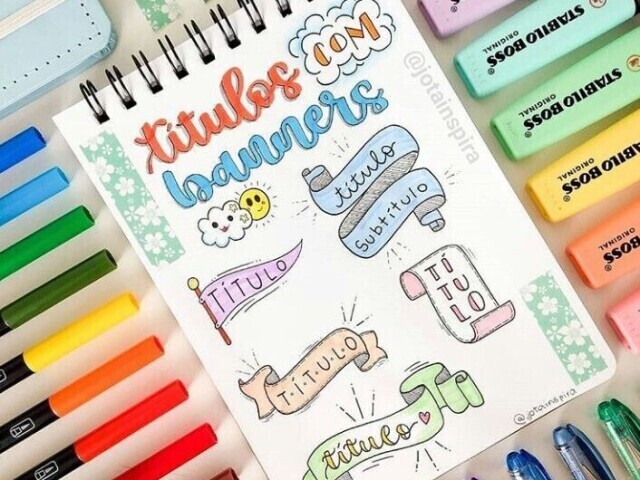 títulos
COM
banners
@jotainspira
título
subtítulo
TÍTULO
TÍ
TU
LO
T.Í.T.U.L.O
título
@jotainspira
STABILO BOSS
ORIGINAL
STABILO BOSS
ORIGINAL
STABILO BOSS
ORIGINAL
STABILO BOSS
ORIGINAL
STABILO BOSS
ORIGINAL
STABILO BOSS
ORIGINAL